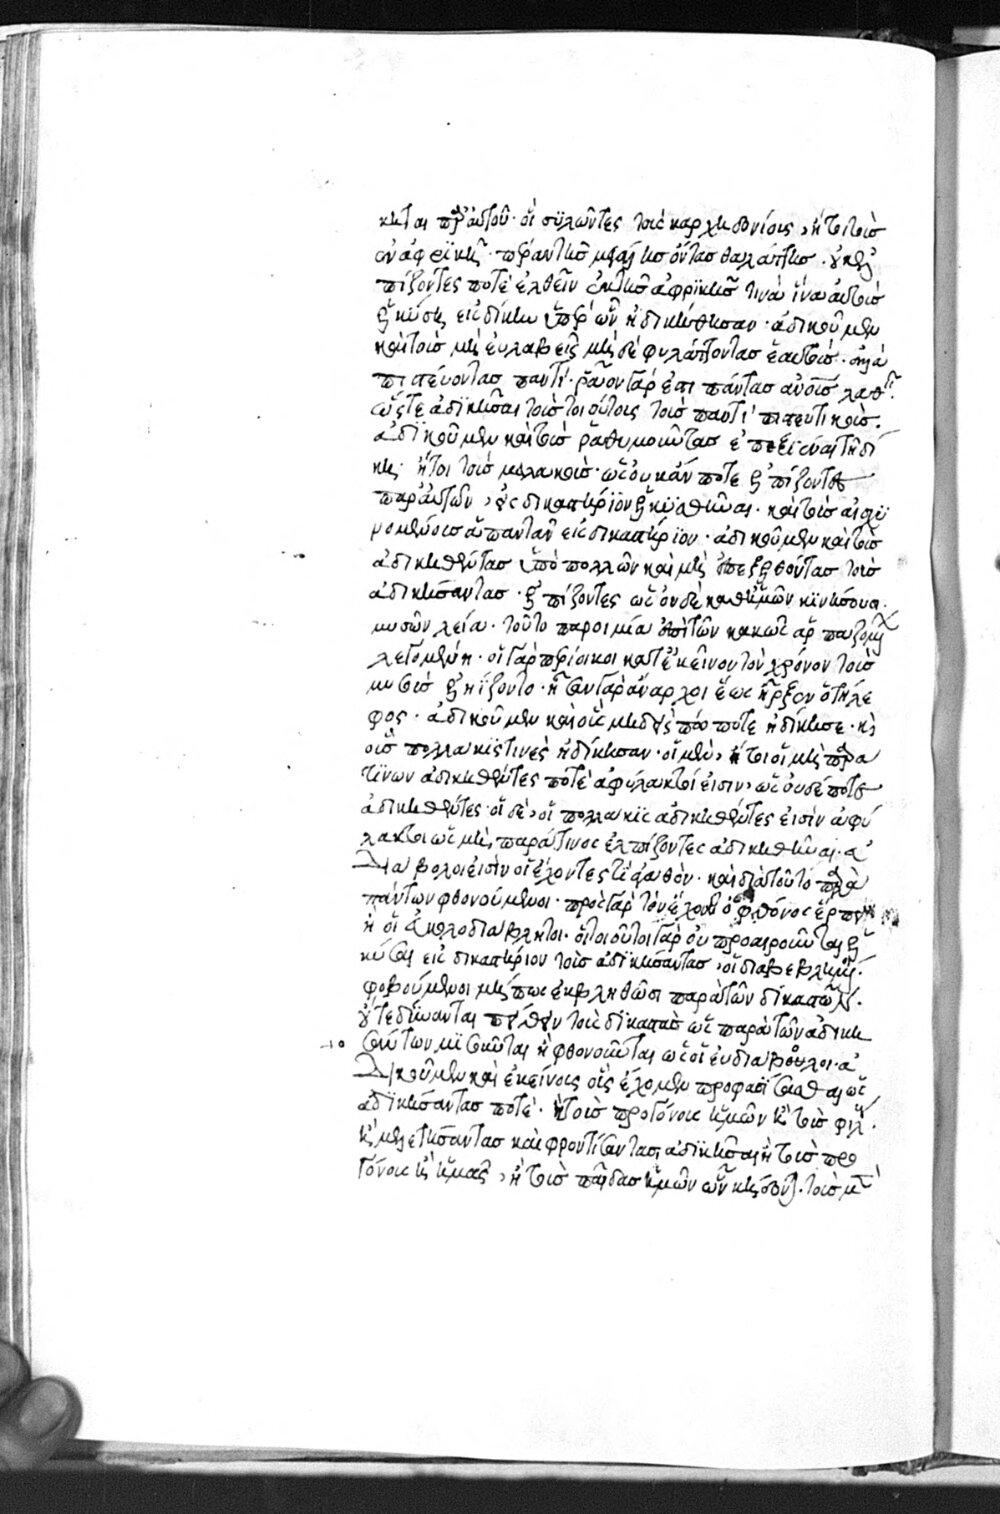 κεται παρ' αὐτοῦ· οἱ συλῶντες τοὺς καρχηδονίους, ἢ τοὺς
ἐν ἀφρικῇ· περάντικα μεσίτας ὄντας θαλάττης· οὐκ ἐλ
πίζοντες ποτὲ ἐλθεῖν ἐκ τῆς ἀφρικῆς τινὰ ἵνα αὐτοὺς
ἑλκύσῃ εἰς δίκην ὑπὲρ ὧν ἠδικήθησαν· ἀδικοῦμεν
καὶ τοὺς μὴ εὐλαβεῖς μὴ δὲ φυλάττοντας ἑαυτούς· ἀλλὰ
πιστεύοντας παντί· ῥᾷον γάρ ἐστι πάντας αὐτοὺς λαθεῖν·
ὥστε ἀδικῆσαι τοὺς τοιούτους τοὺς παντὶ πιστευτικούς·
ἀδικοῦμεν καὶ τοὺς ῥαθυμοῦντας ἐπεξιέναι τῇ δί
κῃ· ἤτοι τοὺς μαλακούς· ὡς οὐκ ἄν ποτε ἐλπίζοντες
παρ' αὐτῶν, εἰς δικαστήριον ἑλκυσθῆναι· καὶ τοὺς αἰσχυ
νομένους ἀπαντᾶν εἰς δικαστήριον· ἀδικοῦμεν καὶ τοὺς
ἀδικηθέντας ὑπὸ πολλῶν καὶ μὴ ἐπεξελθόντας τοὺς
ἀδικήσαντας· ἐλπίζοντες ὡς οὐδὲ καθ' ἡμῶν κινήσουσι·
μυσῶν λεία· τοῦτο παροιμία ἐπὶ τῶν κακῶς ἁρπαζομένων
λεγομένη· οἱ γὰρ περίοικοι κατ' ἐκεῖνον τὸν χρόνον τοὺς
μυσοὺς ἐληΐζοντο· ἦσαν γὰρ ἄναρχοι ἕως ἦρξεν ὁ τήλε
φος· ἀδικοῦμεν καὶ οὓς μηδεὶς πώποτε ἠδίκησε· καὶ
οὓς πολλάκις τινὲς ἠδίκησαν· οἱ μὲν, ἤτοι οἱ μὴ παρά
τινων ἀδικηθέντες ποτὲ ἀφύλακτοί εἰσιν, ὡς οὐδέποτε
ἀδικηθέντες· οἱ δὲ, οἱ πολλάκις ἀδικηθέντες εἰσὶν ἀφύ
λακτοι ὡς μὴ παρά τινος ἐλπίζοντες ἀδικηθῆναι· εὐ
διάβολοι εἰσὶν οἱ ἔχοντές τι ἀγαθὸν· καὶ διὰ τοῦτο παρὰ
πάντων φθονούμενοι· πρὸς γὰρ τὸν ἔχοντα ὁ φθόνος ἕρπει
ἢ οἱ εὐκολοδιάβλητοι· ὅτι οἱ τοιοῦτοι γὰρ οὐ προαιροῦνται ἑλ
κύσαι εἰς δικαστήριον τοὺς ἀδικήσαντας, οἱ διαβεβλημένοι·
φοβούμενοι μήπως ἐκβληθῶσι παρὰ τῶν δικαστῶν·
οὔτε δύνανται πείθειν τοὺς δικαστὰς ὡς παρὰ τῶν ἀδικη
σάντων μισοῦνται ἢ φθονοῦνται ὡς οἱ εὐδιάβολοι· ἀ
δικοῦμεν καὶ ἐκείνους οἷς ἔχομεν προφασίσασθαι ὡς
ἀδικήσαντας ποτέ· ἢ τοὺς προγόνους ἡμῶν ἢ τοὺς φίλους·
ἢ μελετήσαντας καὶ φροντίσαντας ἀδικῆσαι ἢ τοὺς προ
γόνους ἢ ἡμᾶς, ἢ τοὺς παῖδας ἡμῶν ὧν κηδόμεθα· τοὺς μὲν